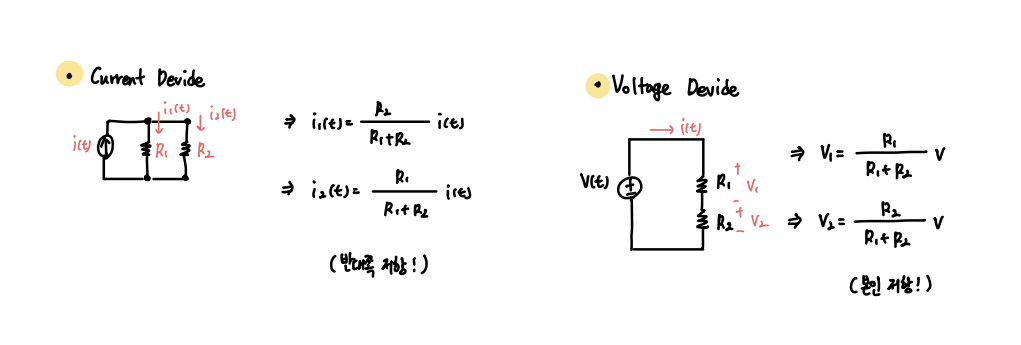 • Current Devide
i(t)
i₁(t)
i₂(t)
R₁
R₂
⇒ i₁(t) = R₂ / (R₁+R₂) i(t)
⇒ i₂(t) = R₁ / (R₁+R₂) i(t)
(반대쪽 저항!)
• Voltage Devide
→ i(t)
V(t)
R₁ + V₁ -
R₂ + V₂ -
⇒ V₁ = R₁ / (R₁+R₂) V
⇒ V₂ = R₂ / (R₁+R₂) V
(본인 저항!)